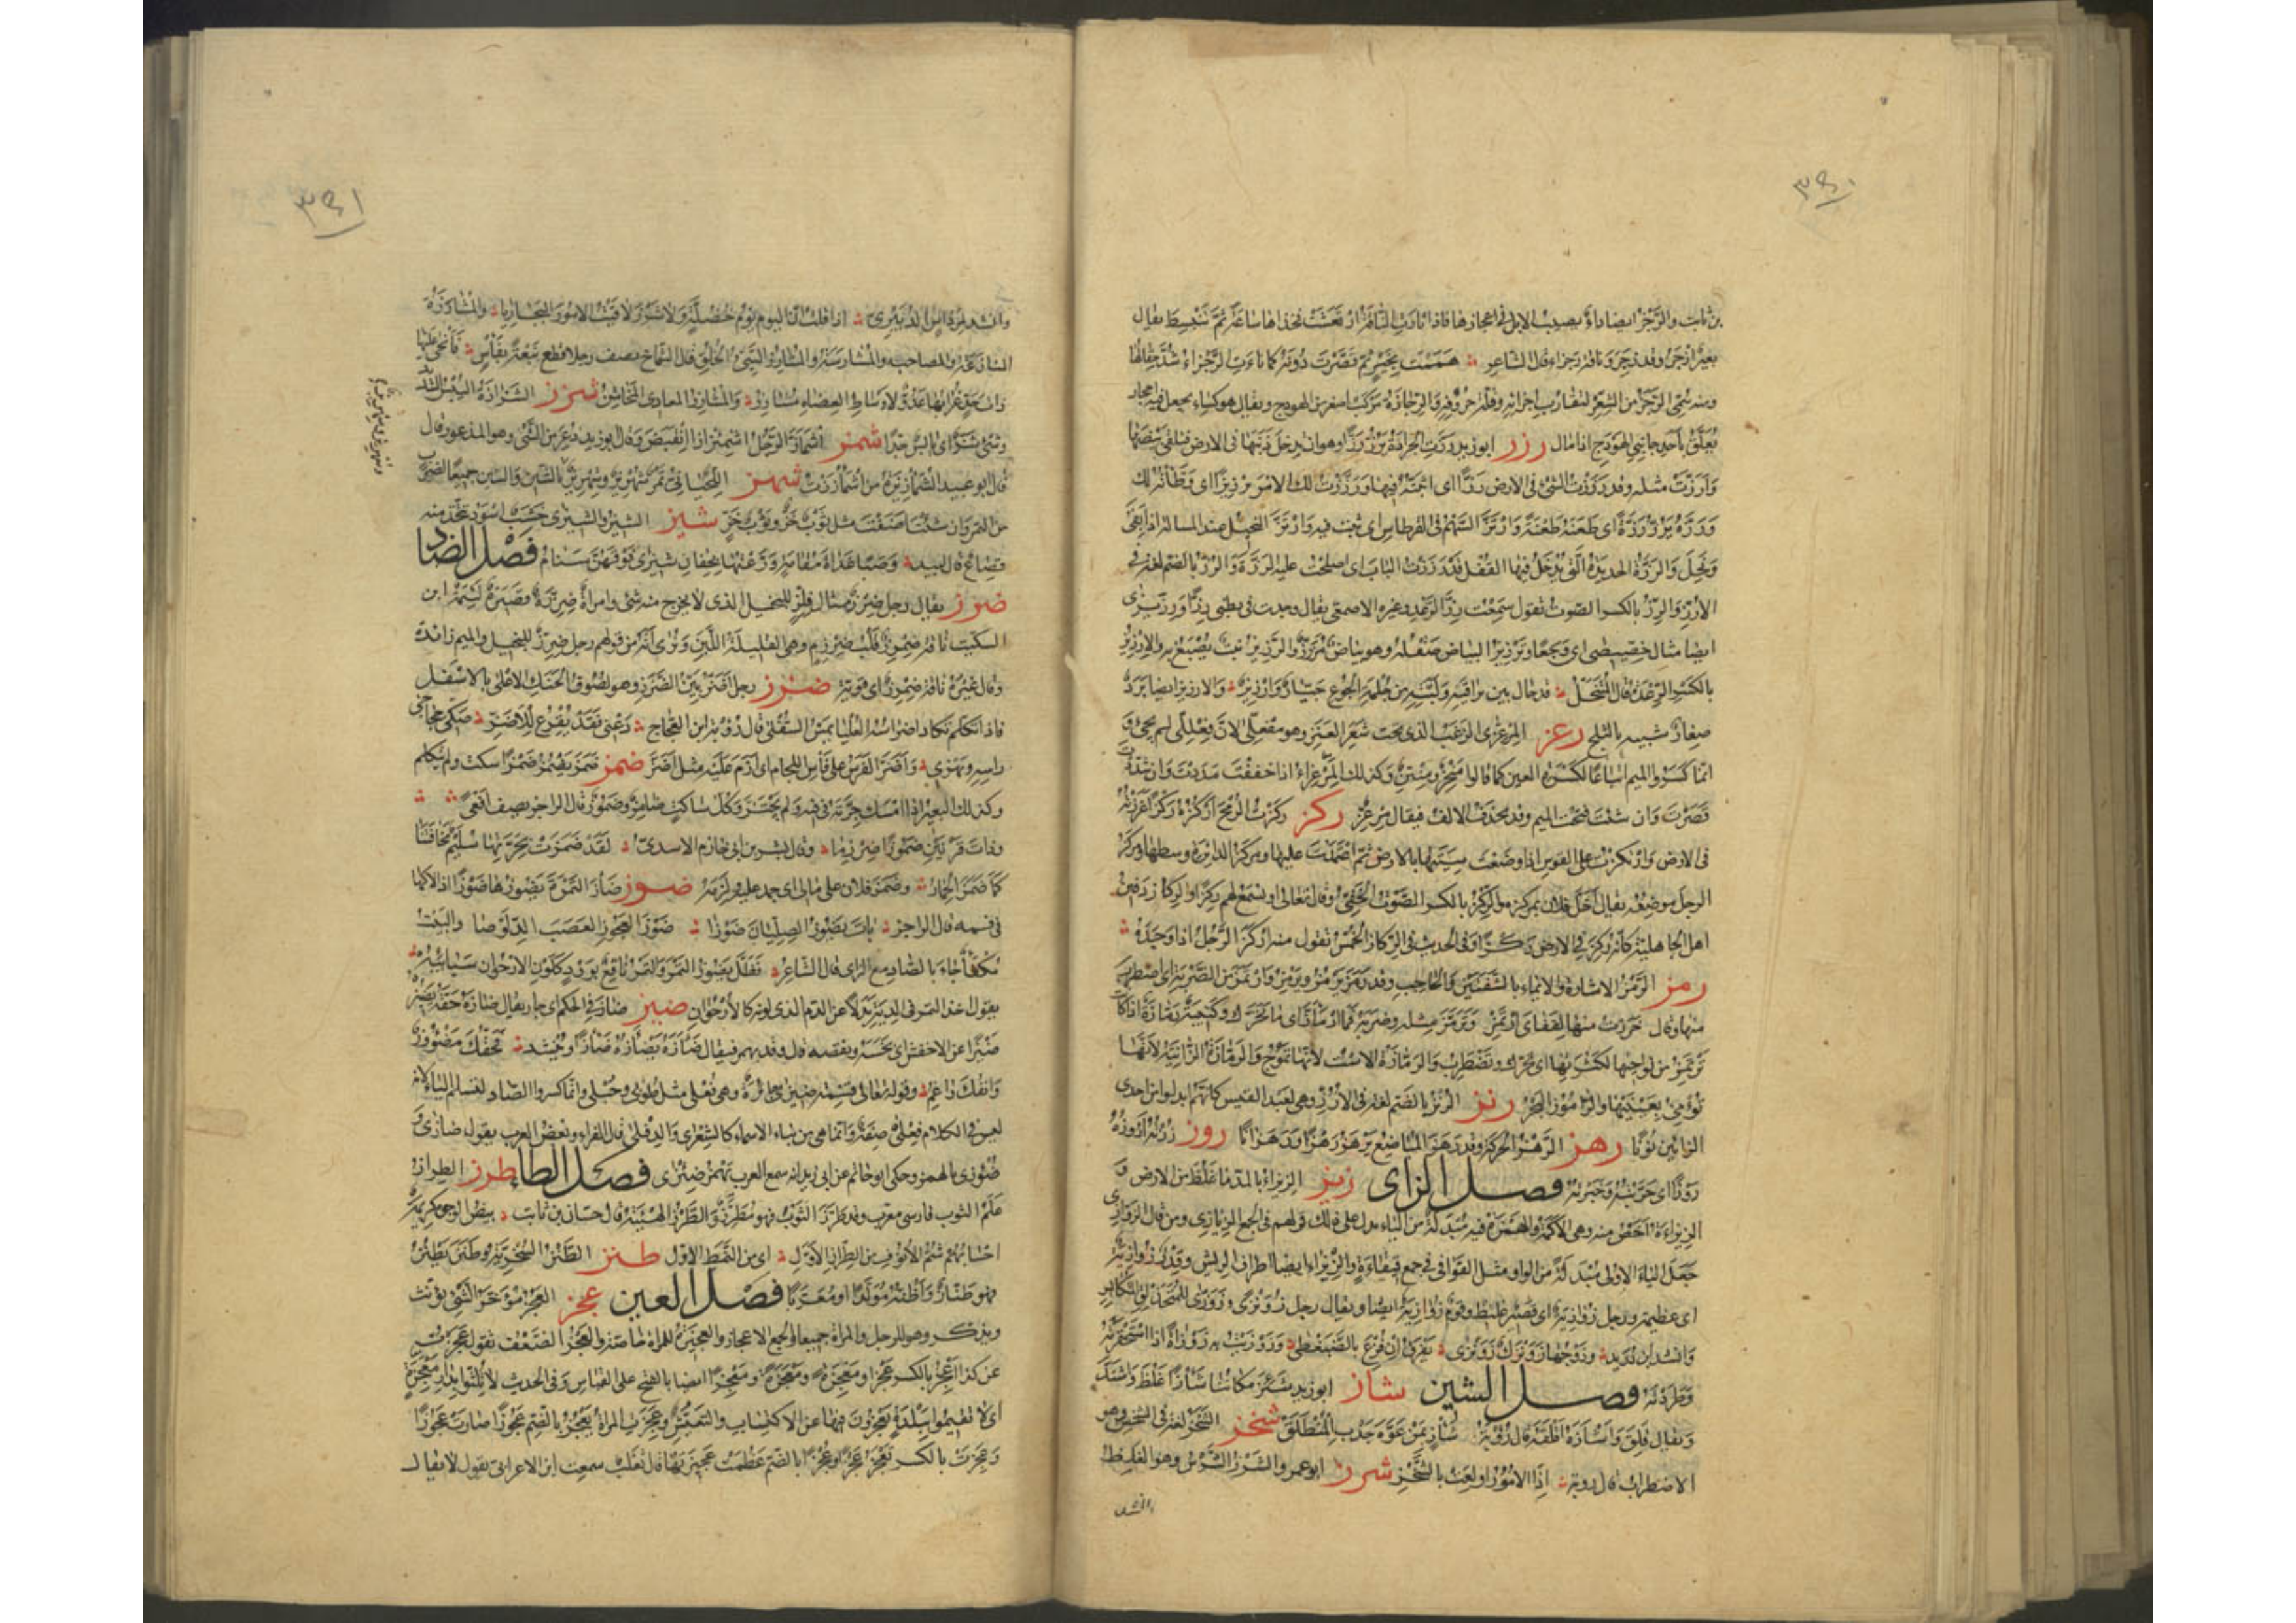 ٣٩٠
بن ثابت والرَّجَزُ ايضا داءٌ يصيب الابل فى اعجازها فاذا ثارت الناقة ارتعشت فخذاها ساعة ثم تنبسط يقال
بعير ارجز وقد رجز وناقة رجزاء قال الشاعر هممت بخير ثم قصرت دونه كما ناءت الرجزاء شد عقالها
ومنه سمى الرجز من الشعر لتقارب اجزائه وقلة حروفه والرجازة مركب اصغر من الهودج ويقال هو كساء يجعل فيه احجار
يعلق باحد جانبى الهودج اذا مال رزز ابو زيد رزت الجرادة ترز رزا وهو ان تدخل ذنبها فى الارض فتلقى بيضها
وارزت مثله وقد رززت الشئ فى الارض رزا اى اثبته فيها ورززت لك الامر ترزيزا اى وطأته لك
ورزه يرزه رزة اى طعنه طعنة وارتز السهم فى القرطاس اى ثبت فيه وارتز البخيل عند المسالة اذا بقى
وبخل والرزة الحديدة التى يدخل فيها القفل وقد رززت الباب اى اصلحت عليه الرزة والرز بالضم لغة فى
الارز والرز بالكسر الصوت تقول سمعت رز الرعد وغيره الاصمعى يقال وجدت فى بطنى رزا ورزيزى
ايضا مثال خصيصى اى وجعا وترزيز البياض صقله وهو بياض مرزز والرزيز نبت يصبغ به والارزيز
بالكسر الرعدة قال المتنخل قد حال بين تراقيه ولبته من جلبة الجوع جيار وارزيز والارزيز ايضا برد
صغار شبيه بالثلج رعز المرعزى الزغب الذى تحت شعر العنز وهو مفعلى لان فعللى لم يجئ و
انما كسروا الميم اتباعا لكسرة العين كما قالوا منخر ومنتن وكذلك المرعزاء اذا خففت مددت وان شددت
قصرت وان شئت فتحت الميم وقد تحذف الالف فيقال مرعز ركز ركزت الرمح اركزه ركزا غرزته
فى الارض وارتكزت على القوس اذا وضعت سيتها بالارض ثم اعتمدت عليها ومركز الدائرة وسطها ومركز
الرجل موضعه يقال اخل فلان بمركزه والركز بالكسر الصوت الخفى وقال تعالى او تسمع لهم ركزا والركاز دفين
اهل الجاهلية كانه ركز فى الارض ركزا وفى الحديث فى الركاز الخمس تقول منه اركز الرجل اذا وجده
رمز الرمز الاشارة والايماء بالشفتين والحاجب وقد رمز يرمز ويرمز وارتمز من الضربة اى اضطرب
منها وقال خررت منها لقفاى ارتمز وترمز مثله وضربه فما ارماز اى ما تحرك وكتيبة رمازة اذا كانت
ترتمز من نواحيها لكثرتها اى تحرك وتضطرب والرمازة الاست لانها تموج والرمازة الزانية لانها
تومئ بعينيها والراموز البحر رنز الرنز بالضم لغة فى الارز وهى لعبد القيس كانهم ابدلوا من احدى
الزايين نونا رهز الرهز الحركة وقد رهز المباضع يرهز رهزا ورهزانا روز رزته اروزه
روزا اى جربته وخبرته فصل الزاى زيز الزيزاء بالمد ما غلظ من الارض و
الزيزاءة اخص منه وهى الاكمة والهمزة فيه مبدلة من الياء يدل على ذلك قولهم فى الجمع الزيازى ومن قال الزوازى
جعل الياء الاولى مبدلة من الواو مثل القوافى فى جمع قيقاءة والزيزاء ايضا اطراف الريش وقدر زوازية
اى عظيمة ورجل زوازية اى قصير غليظ وقوم زوازية ايضا ويقال رجل زونزى وزوزى للمتحذلق المتكاير
وانشد ابن دريد وزوجها زونزك زونزى يفرق ان فزع بالضبغطى وزوزيت به زوزاة اذا استحقرته
وطردته فصل الشين شاز ابو زيد شئز مكاننا شأزا غلظ واشتد
ويقال قلق واشأزه اقلقه قال رؤبة شأز بمن عوه جدب المنطلق شخز الشخز لغة فى الشخس وهو
الاضطراب قال رؤبة اذا الامور اولعت بالشخز شرز ابو عمرو الشرز الشرس وهو الغلظ
وانشد
٣٩١
وانشد لمرداس الدبيرى اذا قلت ان اليوم يوم خضلة ولا شرز لاقيت الامور البجاريا والمشارزة
المنازعة والمصاحبه والمشارسة والمشارز السيئ الخلق قال الشماخ يصف رجلا قطع نبعة بفأس فانحى عليها
ذات حد غرابها عدو لاوساط العضاه مشارز والمشارز المعادى المخاشن شزز الشزازة اليبس الشديد
وشئ شز اى يابس جدا شمز اشمأز الرجل اشمئزازا انقبض وقال ابو زيد ذعر من الشئ وهو المذعور قال
قال ابو عبيد الشمأزيزة من اشمأززت شهز اللحيانى تمر شهريز وشهريز بالشين والسين جميعا لضرب
من التمر وان شئت اضفت مثل ثوب خز وثوب خز شيز الشيز والشيزى خشب اسود تتخذ منه
قصاع قال لبيد وصبا غداة مقامة وزعتها بجفان شيزى فوقهن سنام فصل الضاد
ضرز يقال رجل ضرز مثال فلز للبخيل الذى لا يخرج منه شئ وامراة ضرزة قصيرة لئيمة ابن
السكيت ناقة ضمرز قلب ضرزم وهى القليلة اللبن ونرى انه من قولهم رجل ضرز للبخيل والميم زائدة
وقال غيره ناقة ضمرز اى قوية ضزز رجل اضز بين الضزز وهو لصوق الحنك الاعلى بالاسفل
فاذا تكلم تكاد اضراسه العليا تمس السفلى قال رؤبة ابن العجاج دعنى فقد يقرع للاضز صكى حجاجى
راسه وبهزى واضز الفرس على فأس اللجام اى ازم عليه مثل اضز ضمز ضمز يضمز ضمزا سكت ولم يتكلم
وكذلك البعير اذا امسك جرته فى فيه ولم يجتر وكل ساكت ضامز وضموز قال الراجز يصف افعى
وذات قرنين ضموزا ضرزما وقال بشر بن ابى خازم الاسدى لقد ضمزت بجرتها سليم مخافتنا
كما ضمز الحمار وضمز فلان على مالى اى جمد عليه ولزمه ضوز ضاز التمرة يضوزها ضوزا اذا لاكها
فى فمه قال الراجز بات يضوز الصليان ضوزا ضوز العجوز العصب الدلوصا والبيت
مكفأ جاء بالصاد مع الزاى قال الشاعر فظل يضوز التمر والتمر ناقع بورد كلون الارجوان سبائبه
يقول اخذ التمر فى الدية بدلا عن الدم الذى لونه كالارجوان ضيز ضاز فى الحكم اى جار يقال ضازه حقه يضيزه
ضيزا عن الاخفش اى بخسه ونقصه قال وقد يهمز فيقال ضأزه يضأزه ضأزا وينشد فحقك مضؤوز
وانفك راغم وقوله تعالى قسمة ضيزى جائرة وهى فعلى مثل طوبى وحبلى وانما كسروا الضاد لتسلم الياء لانه
ليس فى الكلام فعلى صفة وانما هى من بناء الاسماء كالشعرى والدفلى قال الفراء وبعض العرب يقول ضأزى و
ضؤزى بالهمز وحكى ابو حاتم عن ابى زيد انه سمع العرب تهمز ضئزى فصل الطاء طرز الطراز
علم الثوب فارسى معرب وقد طرز الثوب فهو مطرز والطرز الهيئة قال حسان بن ثابت بيض الوجوه كريمة
احسابهم شم الانوف من الطراز الاول اى من النمط الاول طنز الطنز السخرية وطنز يطنز
فهو طناز واظنه مولدا او معربا فصل العين عجز العجز مؤخر الشئ يؤنث
ويذكر وهو للرجل والمراة جميعا والجمع الاعجاز والعجيزة للمراة خاصة والعجز الضعف تقول عجزت
عن كذا اعجز بالكسر عجزا ومعجزة ومعجزة ومعجزا ايضا بالفتح على القياس وفى الحديث لا تلثوا بدار معجزة
اى لا تقيموا ببلدة تعجزون فيها عن الاكتساب والتعيش وعجزت المراة تعجز بالضم عجوزا صارت عجوزا
وعجزت بالكسر تعجز عجزا وعجزا بالضم عظمت عجيزتها قال ثعلب سمعت ابن الاعرابى يقول لا يقال